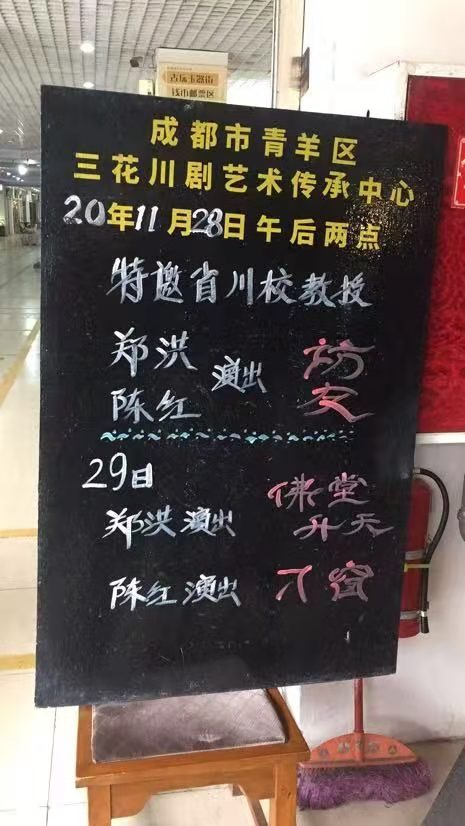 古玩玉器街
钱币邮票区
成都市青羊区
三花川剧艺术传承中心
20年11月28日午后两点
特邀省川校教授
郑洪
陈红
演出
访友
29日
郑洪演出
佛堂
升天
陈红演出
刁窗